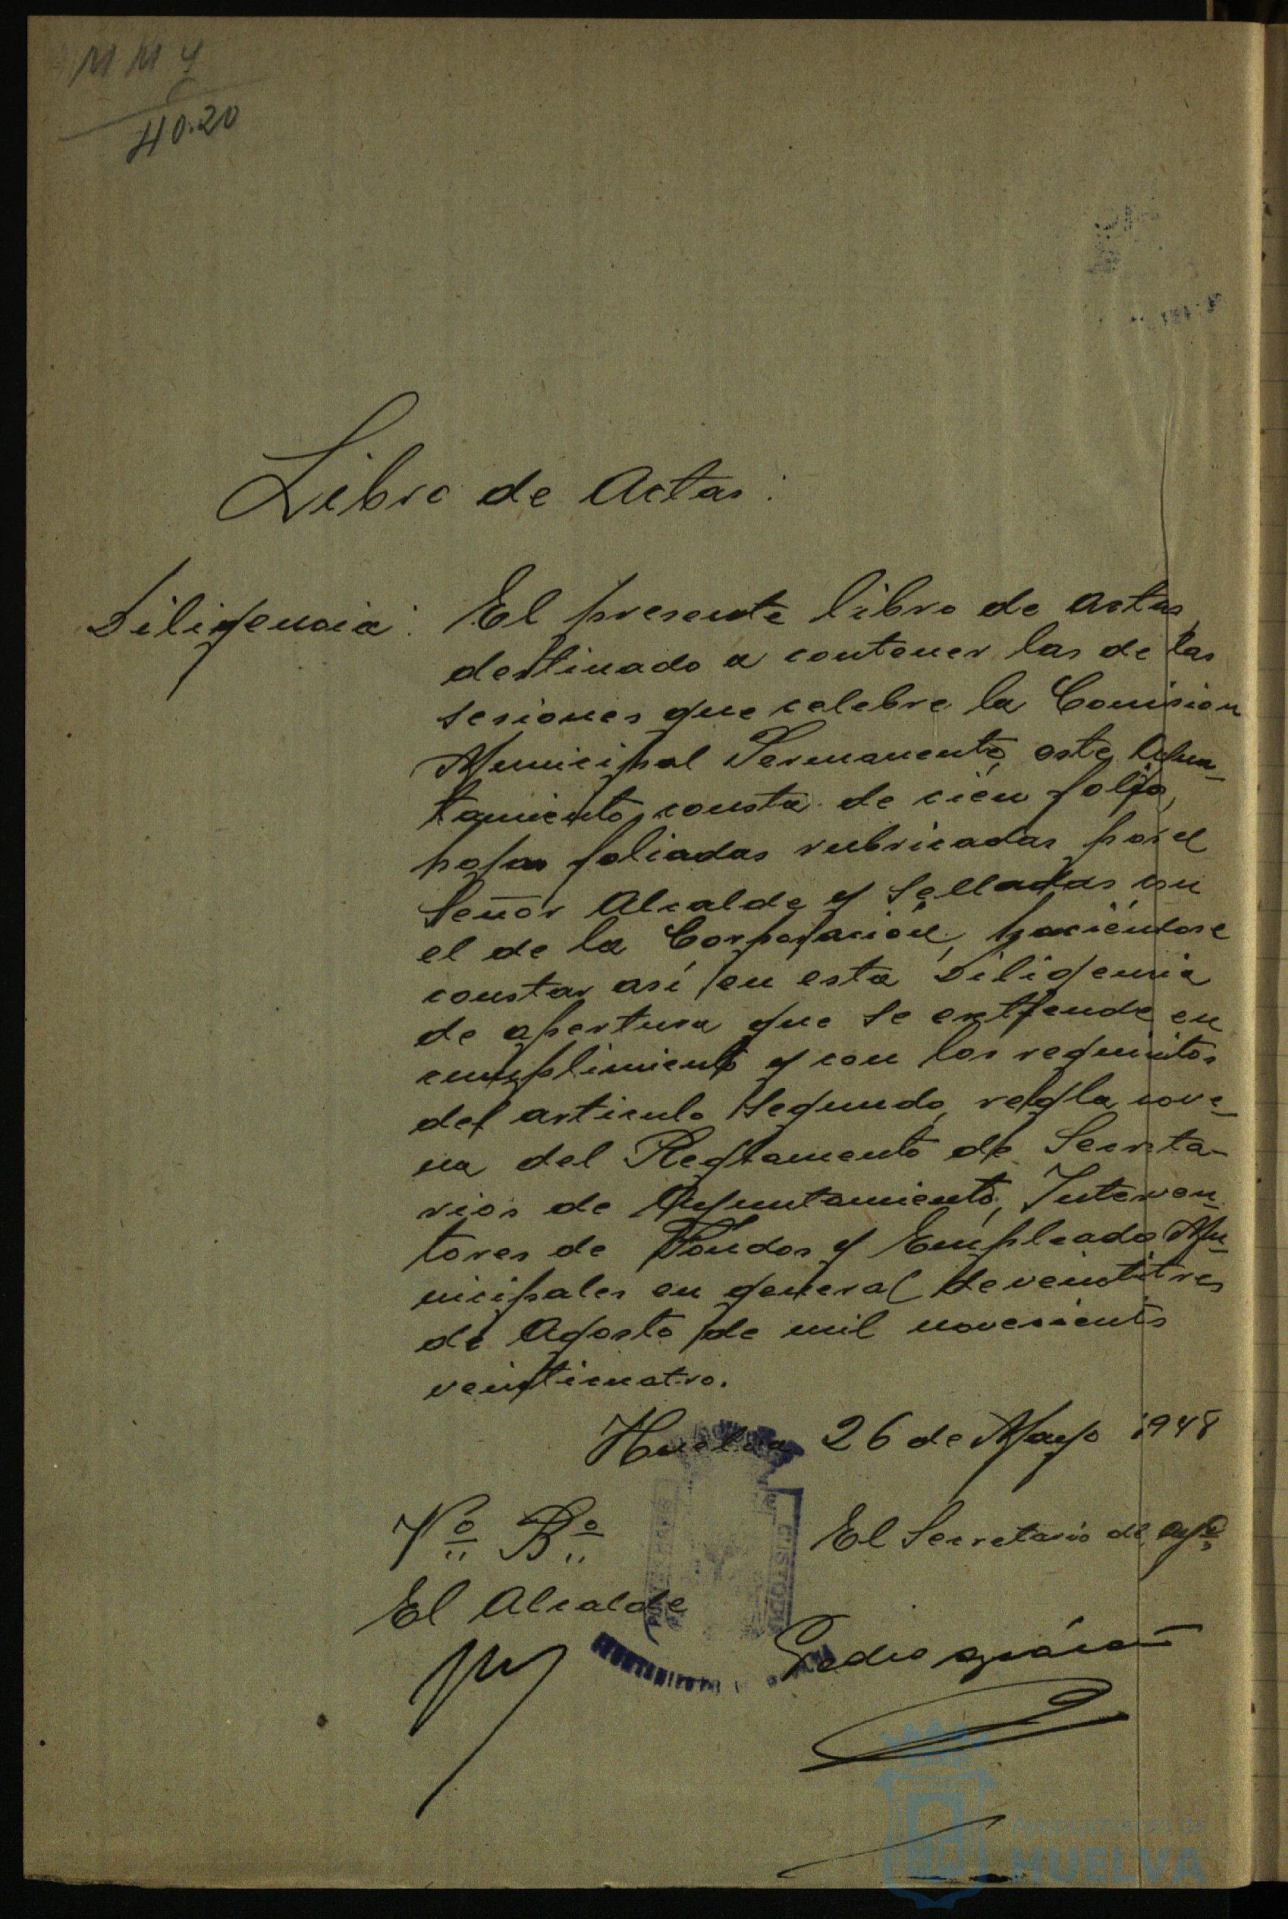 40.20
Libro de Actas:
Diligencia: El presente libro de Actas,
destinado a contener las de las
sesiones que celebre la Comision
Municipal Permanente, este Ayun-
tamiento, consta de cien folio,
hojas foliadas rubricadas por el
Señor Alcalde y Selladas con
el de la Corporación, haciéndose
constar así en esta Diligencia
de apertura que se extiende en
cumplimiento y con los requisitos
del articulo segundo, regla nove-
na del Reglamento de Secreta-
rios de Ayuntamiento, Interven-
tores de Fondos y Empleado Mu-
nicipales en general de veintitres
de Agosto de mil novecientos
veinticuatro.
Huelva 26 de Mayo 1948
Vº Bº
El Secretario del Aytº
El Alcalde
Pedro
CUSTODIA
AYUNTAMIENTO
AYUNTAMIENTO DE
HUELVA